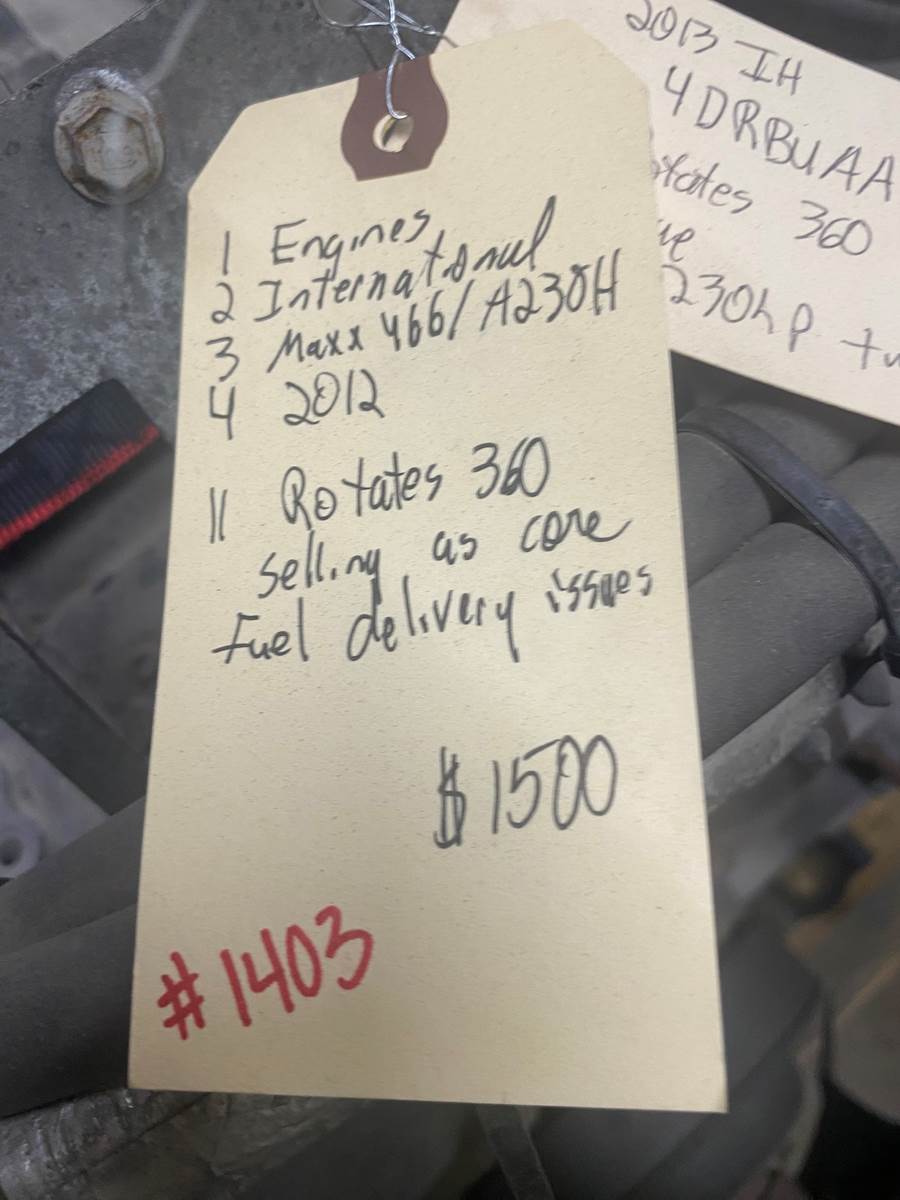 1 Engines
2 International
3 Maxx 466/A230H
4 2012
11 Rotates 360
selling as core
Fuel delivery issues
$1500
#1403
2013 IH
4DRBUAA
360
230hp